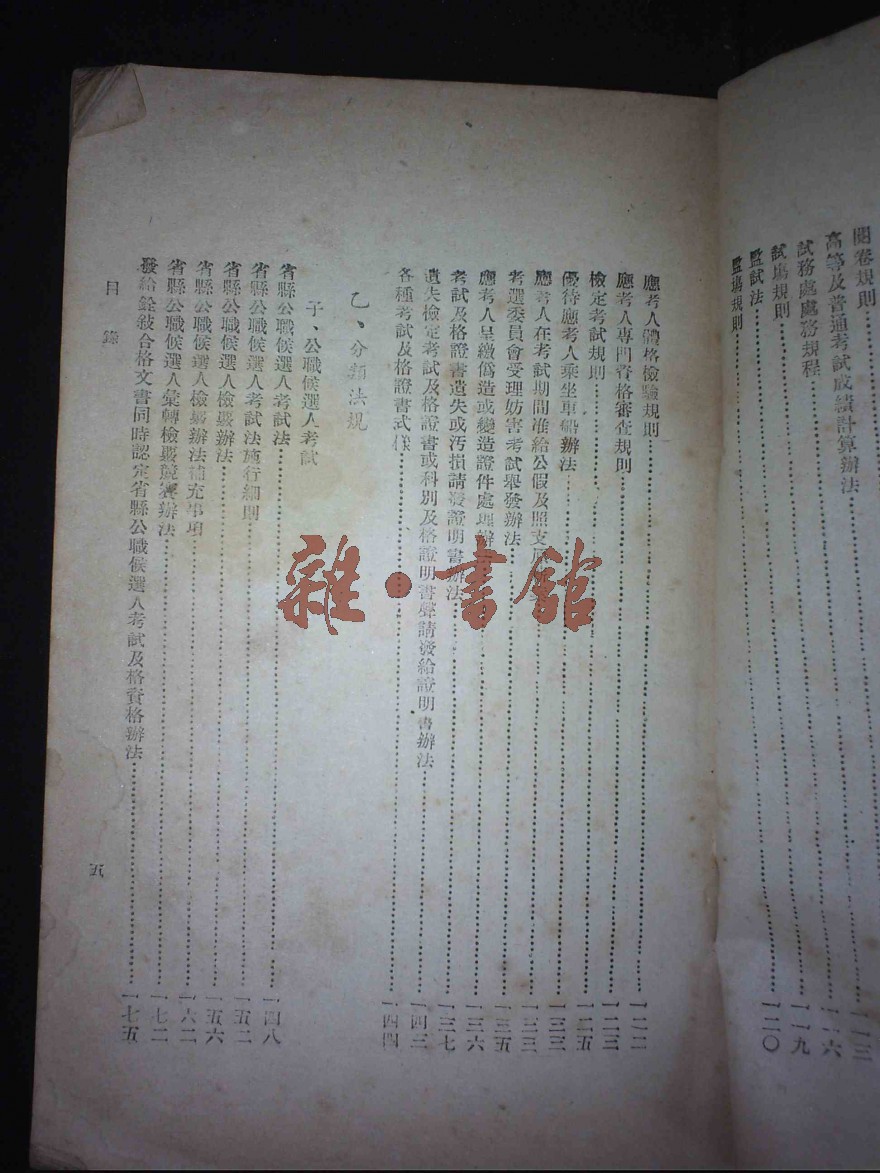 閱卷規則……一一三
高等及普通考試成績計算辦法……一一六
試務處處務規程……一一九
試場規則……一二〇
監試法……
監場規則……
應考人體格檢驗規則……一二二
應考人專門資格審查規則……一二三
檢定考試規則……一二五
優待應考人乘坐車船辦法……一三三
應考人在考試期間准給公假及照支……一三三
考選委員會受理妨害考試舉發辦法……一三五
應考人呈繳僞造或變造證件處理辦……一三六
考試及格證書遺失或汚損請發證明書辦法……一三七
遺失檢定考試及格證書或科别及格證明書聲請發給證明書辦法……一四三
各種考試及格證書式樣……一四四
乙、分類法規
子、公職候選人考試
省縣公職候選人考試法……一四八
省縣公職候選人考試法施行細則……一五二
省縣公職候選人檢覈辦法……一五六
省縣公職候選人檢覈辦法補充事項……一六二
省縣公職候選人彙轉檢覈競賽辦法……一七二
發給銓敍合格文書同時認定省縣公職候選人考試及格資格辦法……一七五
目錄
五
雜·書館